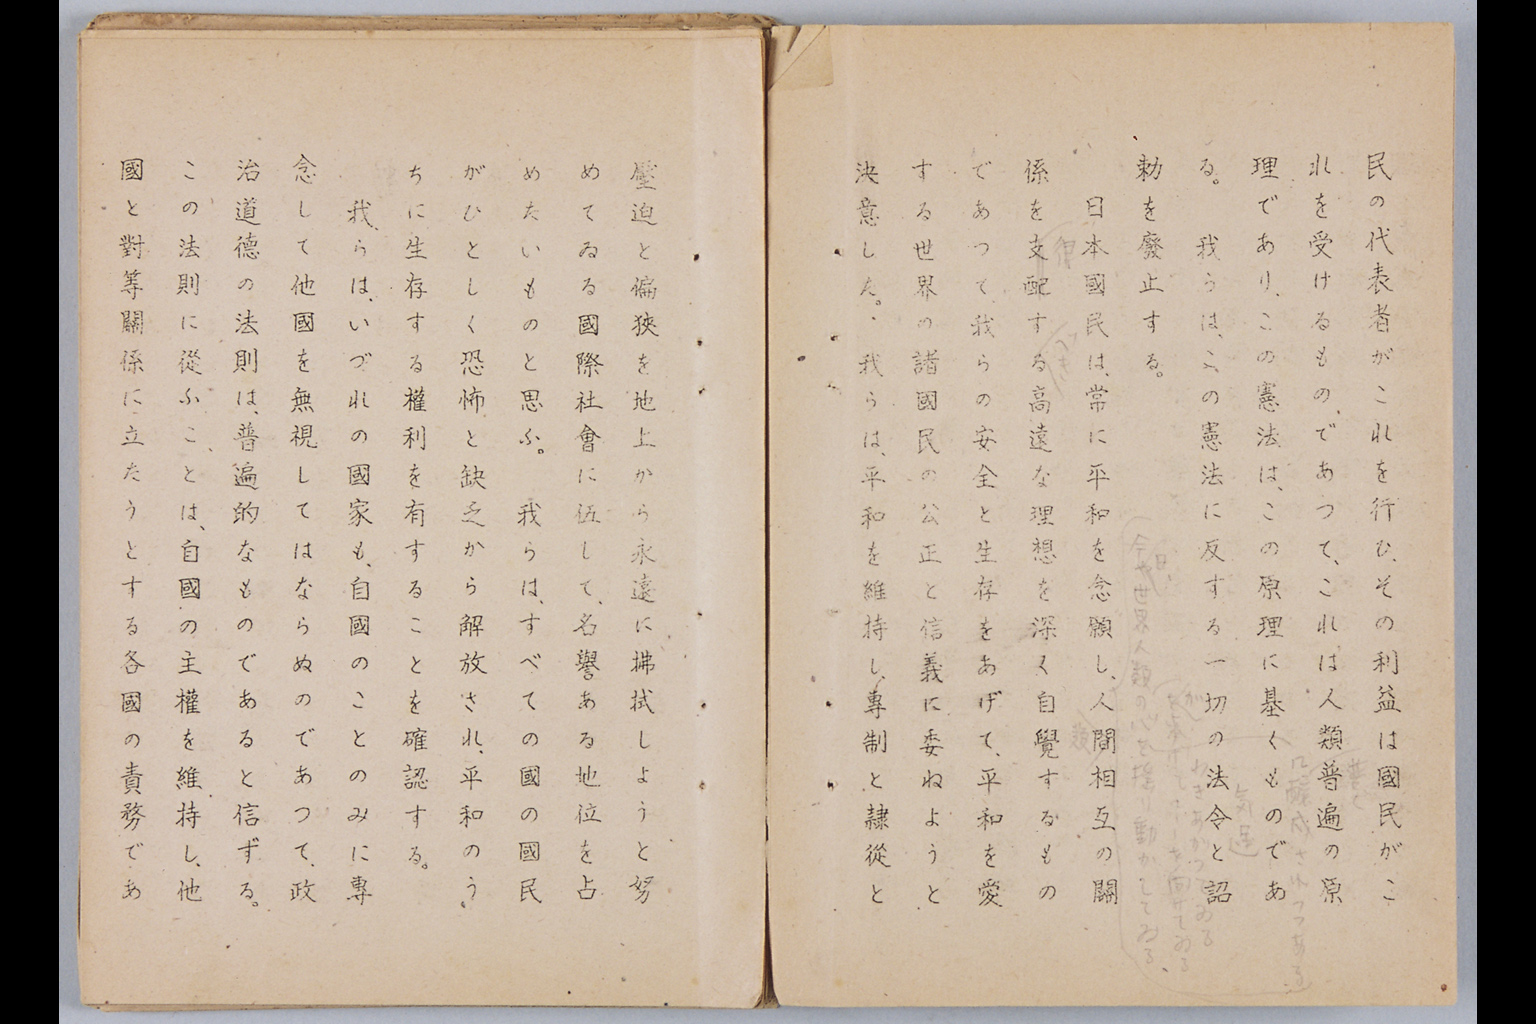 民の代表者がこれを行ひ、その利益は國民がこ
れを受けるものであつて、これは人類普遍の原
理であり、この憲法は、この原理に基くものであ
る。我らは、この憲法に反する一切の法令と詔
勅を廢止する。
日本國民は、常に平和を念願し、人間相互の關
係を支配する高遠な理想を深く自覺するもの
であつて、我らの安全と生存をあげて、平和を愛
する世界の諸國民の公正と信義に委ねようと
決意した。我らは、平和を維持し、專制と隷從と
壓迫と偏狹を地上から永遠に拂拭しようと努
めてゐる國際社會に伍して、名譽ある地位を占
めたいものと思ふ。我らは、すべての國の國民
がひとしく恐怖と缺乏から解放され、平和のう
ちに生存する權利を有することを確認する。
我らは、いづれの國家も、自國のことのみに專
念して他國を無視してはならぬのであつて、政
治道德の法則は、普遍的なものであると信ずる。
この法則に從ふことは、自國の主權を維持し、他
國と對等關係に立たうとする各國の責務であ
今や世界人類の心を搖り動かしてゐる、